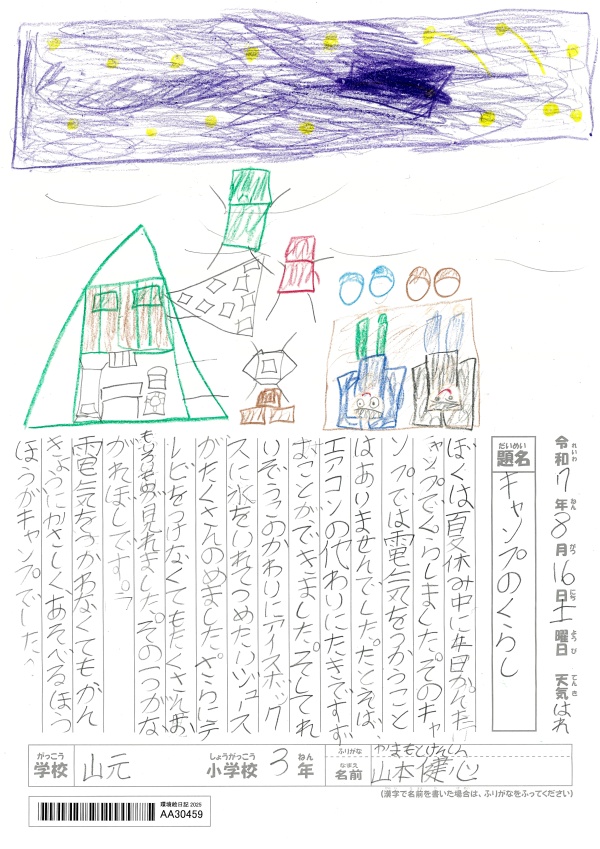 令和7年8月16日土曜日 天気はれ
れいわ ねん がつ にち ようび てんき
だいめい
題名 キャンプのくらし
ぼくは夏休み中に4日かんキ
ャンプでくらしました。そのキャ
ンプでは電気をつかうこと
はありませんでした。たとえば、
エアコンの代わりにたきですず
むことができました。そしてれ
いぞうこのかわりにアイスボック
スに水をいれてつめたいジュース
がたくさんのめました。さらにテ
レビをつけなくてもたくさんお
が見れました。その一つがな
がれぼしです。
電気をつかわなくてもかん
きょうにやさしくあそべるほう
ほうがキャンプでした。
がっこう しょうがっこう ねん
学校 山元 小学校 3年
ふりがな やまもとけんしん
なまえ
名前 山本健心
(漢字で名前を書いた場合は、ふりがなをふってください)
環境絵日記 2025
AA30459